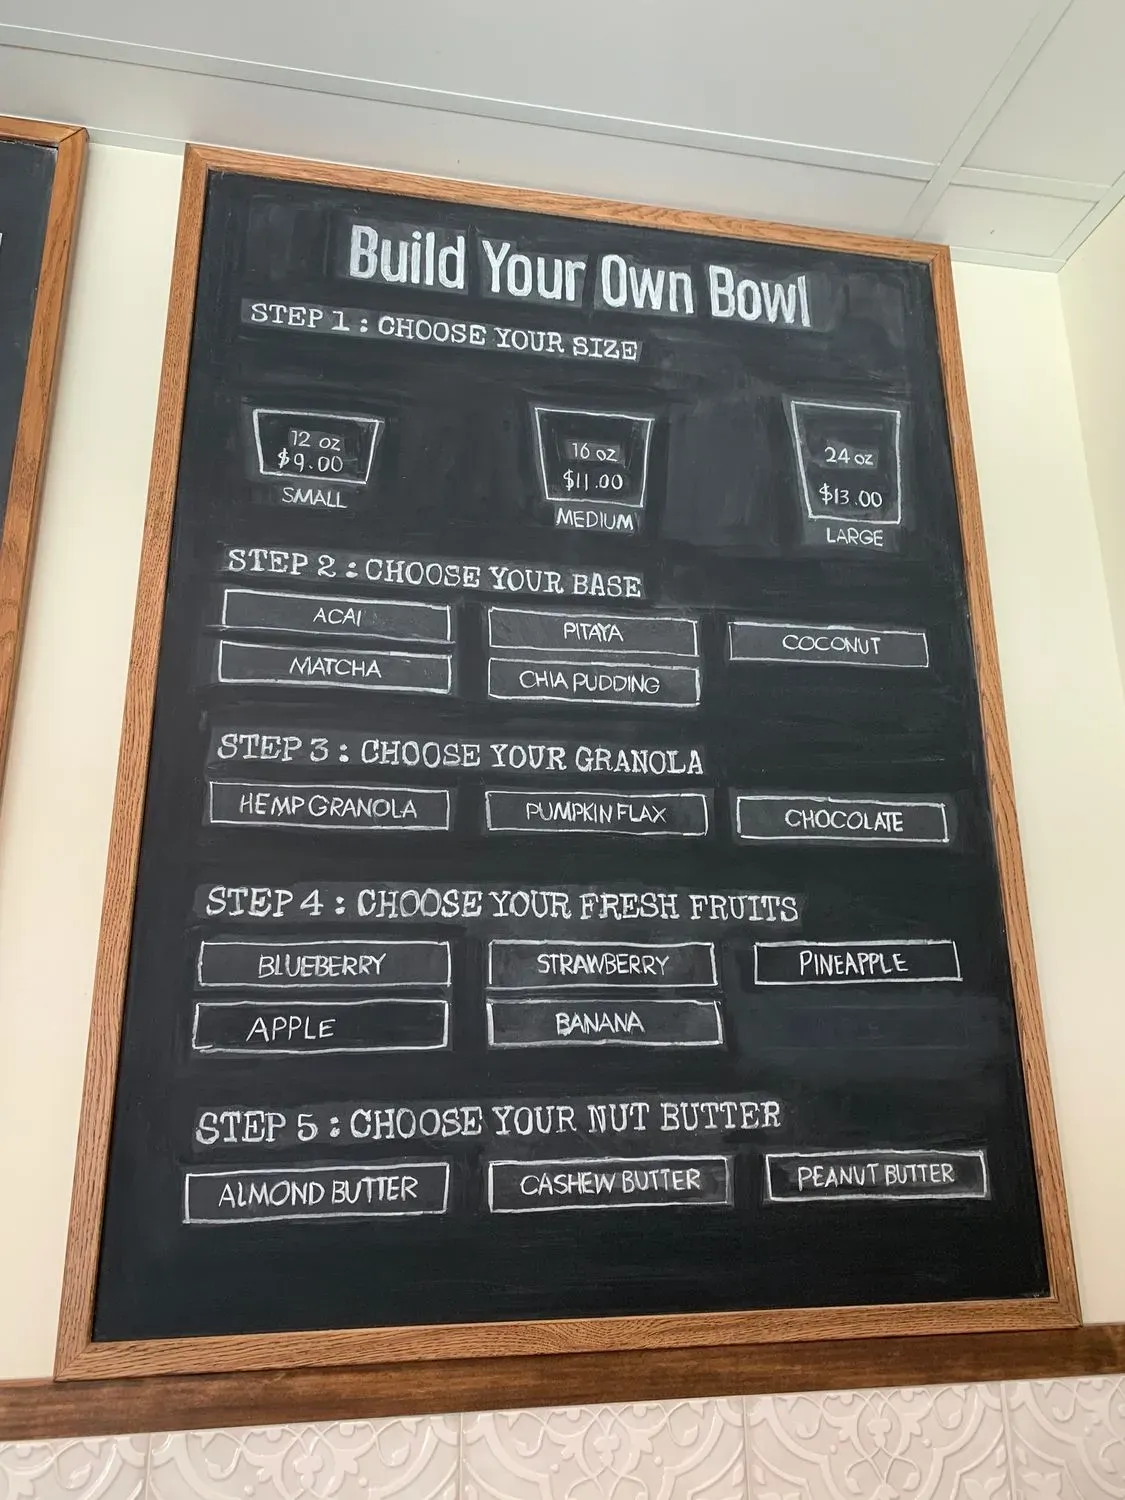 Build Your Own Bowl
STEP 1 : CHOOSE YOUR SIZE
12 oz
$9.00
SMALL
16 oz
$11.00
MEDIUM
24 oz
$13.00
LARGE
STEP 2 : CHOOSE YOUR BASE
ACAI
PITAYA
COCONUT
MATCHA
CHIA PUDDING
STEP 3 : CHOOSE YOUR GRANOLA
HEMP GRANOLA
PUMPKIN FLAX
CHOCOLATE
STEP 4 : CHOOSE YOUR FRESH FRUITS
BLUEBERRY
STRAWBERRY
PINEAPPLE
APPLE
BANANA
STEP 5 : CHOOSE YOUR NUT BUTTER
ALMOND BUTTER
CASHEW BUTTER
PEANUT BUTTER